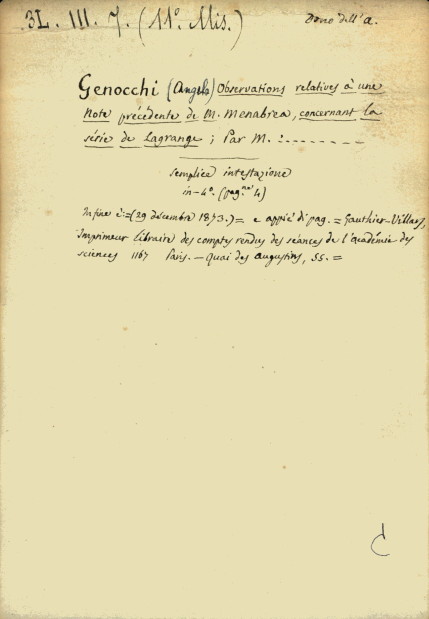 3L. III. 7. (11º. Mis.)
Dono dell'a.
Genocchi (Angelo) Observations relatives à une
Note précédente de M. Menabrea, concernant la
série de Lagrange ; Par M. :.........
semplice intestazione
in-4º. (pag.ne 4)
Infine è:=(29 décembre 1873.)= e appiè di pag. = Gauthier-Villars,
Imprimeur libraire des comptes rendus des séances de l'académie des
sciences 1167 Paris. — Quai des augustins, 55. =